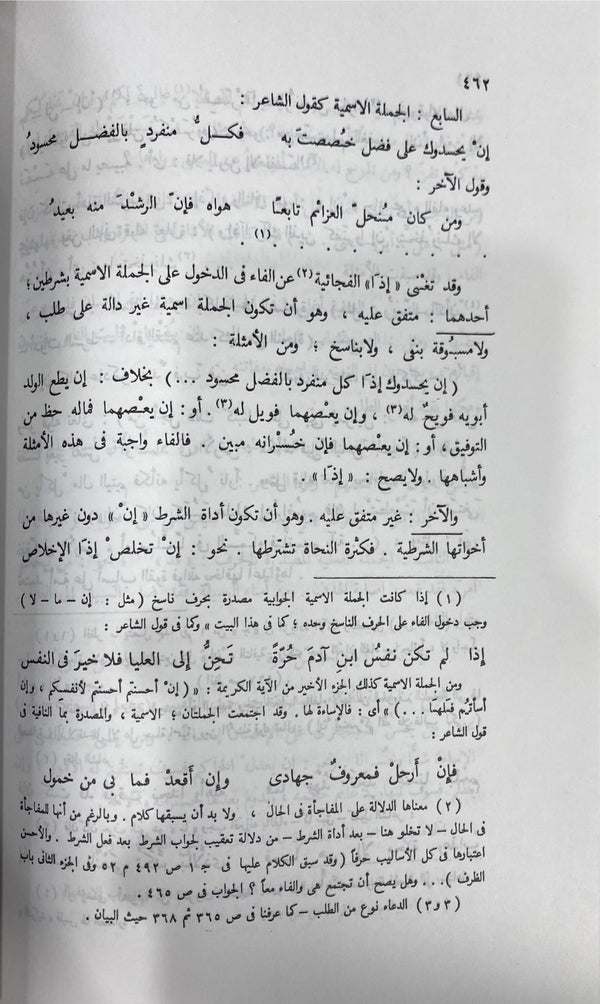 ٤٦٢
السابع : الجملة الاسمية كقول الشاعر :
إنْ يحسدوك على فضل خُصصتَ به فكلُّ منفردٍ بالفضل محسودُ
وقول الآخر :
ومن كان مُنْحلّ العزائم تابعًا هواه فإنّ الرشْدَ منه بعيدُ
. . . . . . . (١)
وقد تغْنى « إذا » الفجائية (٢) عن الفاء فى الدخول على الجملة الاسمية بشرطين ؛
أحدهما : متفق عليه ، وهو أن تكون الجملة اسمية غير دالة على طلب ،
ولا مسبُوقة بنفى ، ولا بناسخ ؛ ومن الأمثلة :
( إن يحسدوك إذا كل منفرد بالفضل محسود ... ) بخلاف : إن يطع الولد
أبويه فويحٌ له (٣) ، وإن يعْصهما فويل له (٣) . أو : إن يعصهما فماله حظ من
التوفيق ، أو : إن يعْصهما فإن خُسْرانه مبين . فالفاء واجبة فى هذه الأمثلة
وأشباهها . ولا يصح : « إذا » .
والآخر : غير متفق عليه . وهو أن تكون أداة الشرط « إنْ » دون غيرها من
أخواتها الشرطية . فكثرة النحاة تشترطها . نحو : إنْ تخلص إذا الإخلاص
(١) إذا كانت الجملة الاسمية الجوابية مصدرة بحرف ناسخ ( مثل : إن – ما – لا )
وجب دخول الفاء على الحرف الناسخ وحده ؛ كما فى هذا البيت » وكما فى قول الشاعر :
إذا لم تكن نفسُ ابنِ آدمَ حُرّةً تَحِنُّ إلى العليا فلا خيرَ فى النفس
ومن الجملة الاسمية كذلك الجزء الأخير من الآية الكريمة : « ( إنْ أحسنتم أحسنتم لأنفسكم ، وإن
أسأتم فَلَها ... ) » أى : فالإساءة لها . وقد اجتمعت الجملتان ؛ الاسمية ، والمصدرة بما النافية فى
قول الشاعر :
فإنْ أرحلْ فمعروفٌ جهادى وإن أقعدْ فما بى من خمول
(٢) معناها الدلالة على المفاجأة فى الحال ، ولا بد أن يسبقها كلام . وبالرغم من أنها للمفاجأة
فى الحال – لا تخلو هنا – بعد أداة الشرط – من دلالة تعقيب لجواب الشرط بعد فعل الشرط . والأحسن
اعتبارها فى كل الأساليب حرفاً ( وقد سبق الكلام عليها فى جـ ١ ص ٤٩٢ م ٥٢ وفى الجزء الثانى باب
الظرف ) ... وهل يصح أن تجتمع هى والفاء معاً ؟ الجواب فى ص ٤٦٥ .
(٣ و ٣) الدعاء نوع من الطلب – كما عرفنا فى ص ٣٦٥ ثم ٣٦٨ حيث البيان .